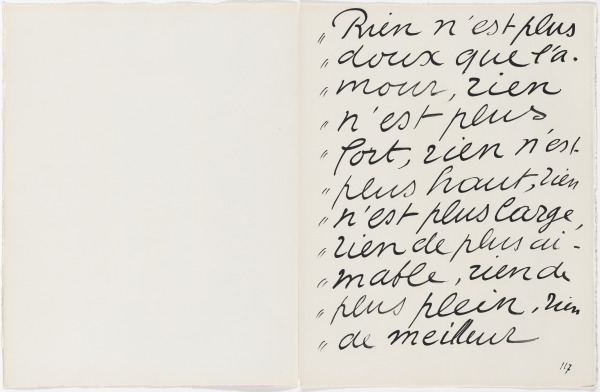 „ Rien n'est plus
„ doux que l'a-
„ mour, rien
„ n'est plus
„ fort, rien n'est
„ plus haut, rien
„ n'est plus large,
„ rien de plus ai-
„ mable, rien de
„ plus plein, rien
„ de meilleur
117